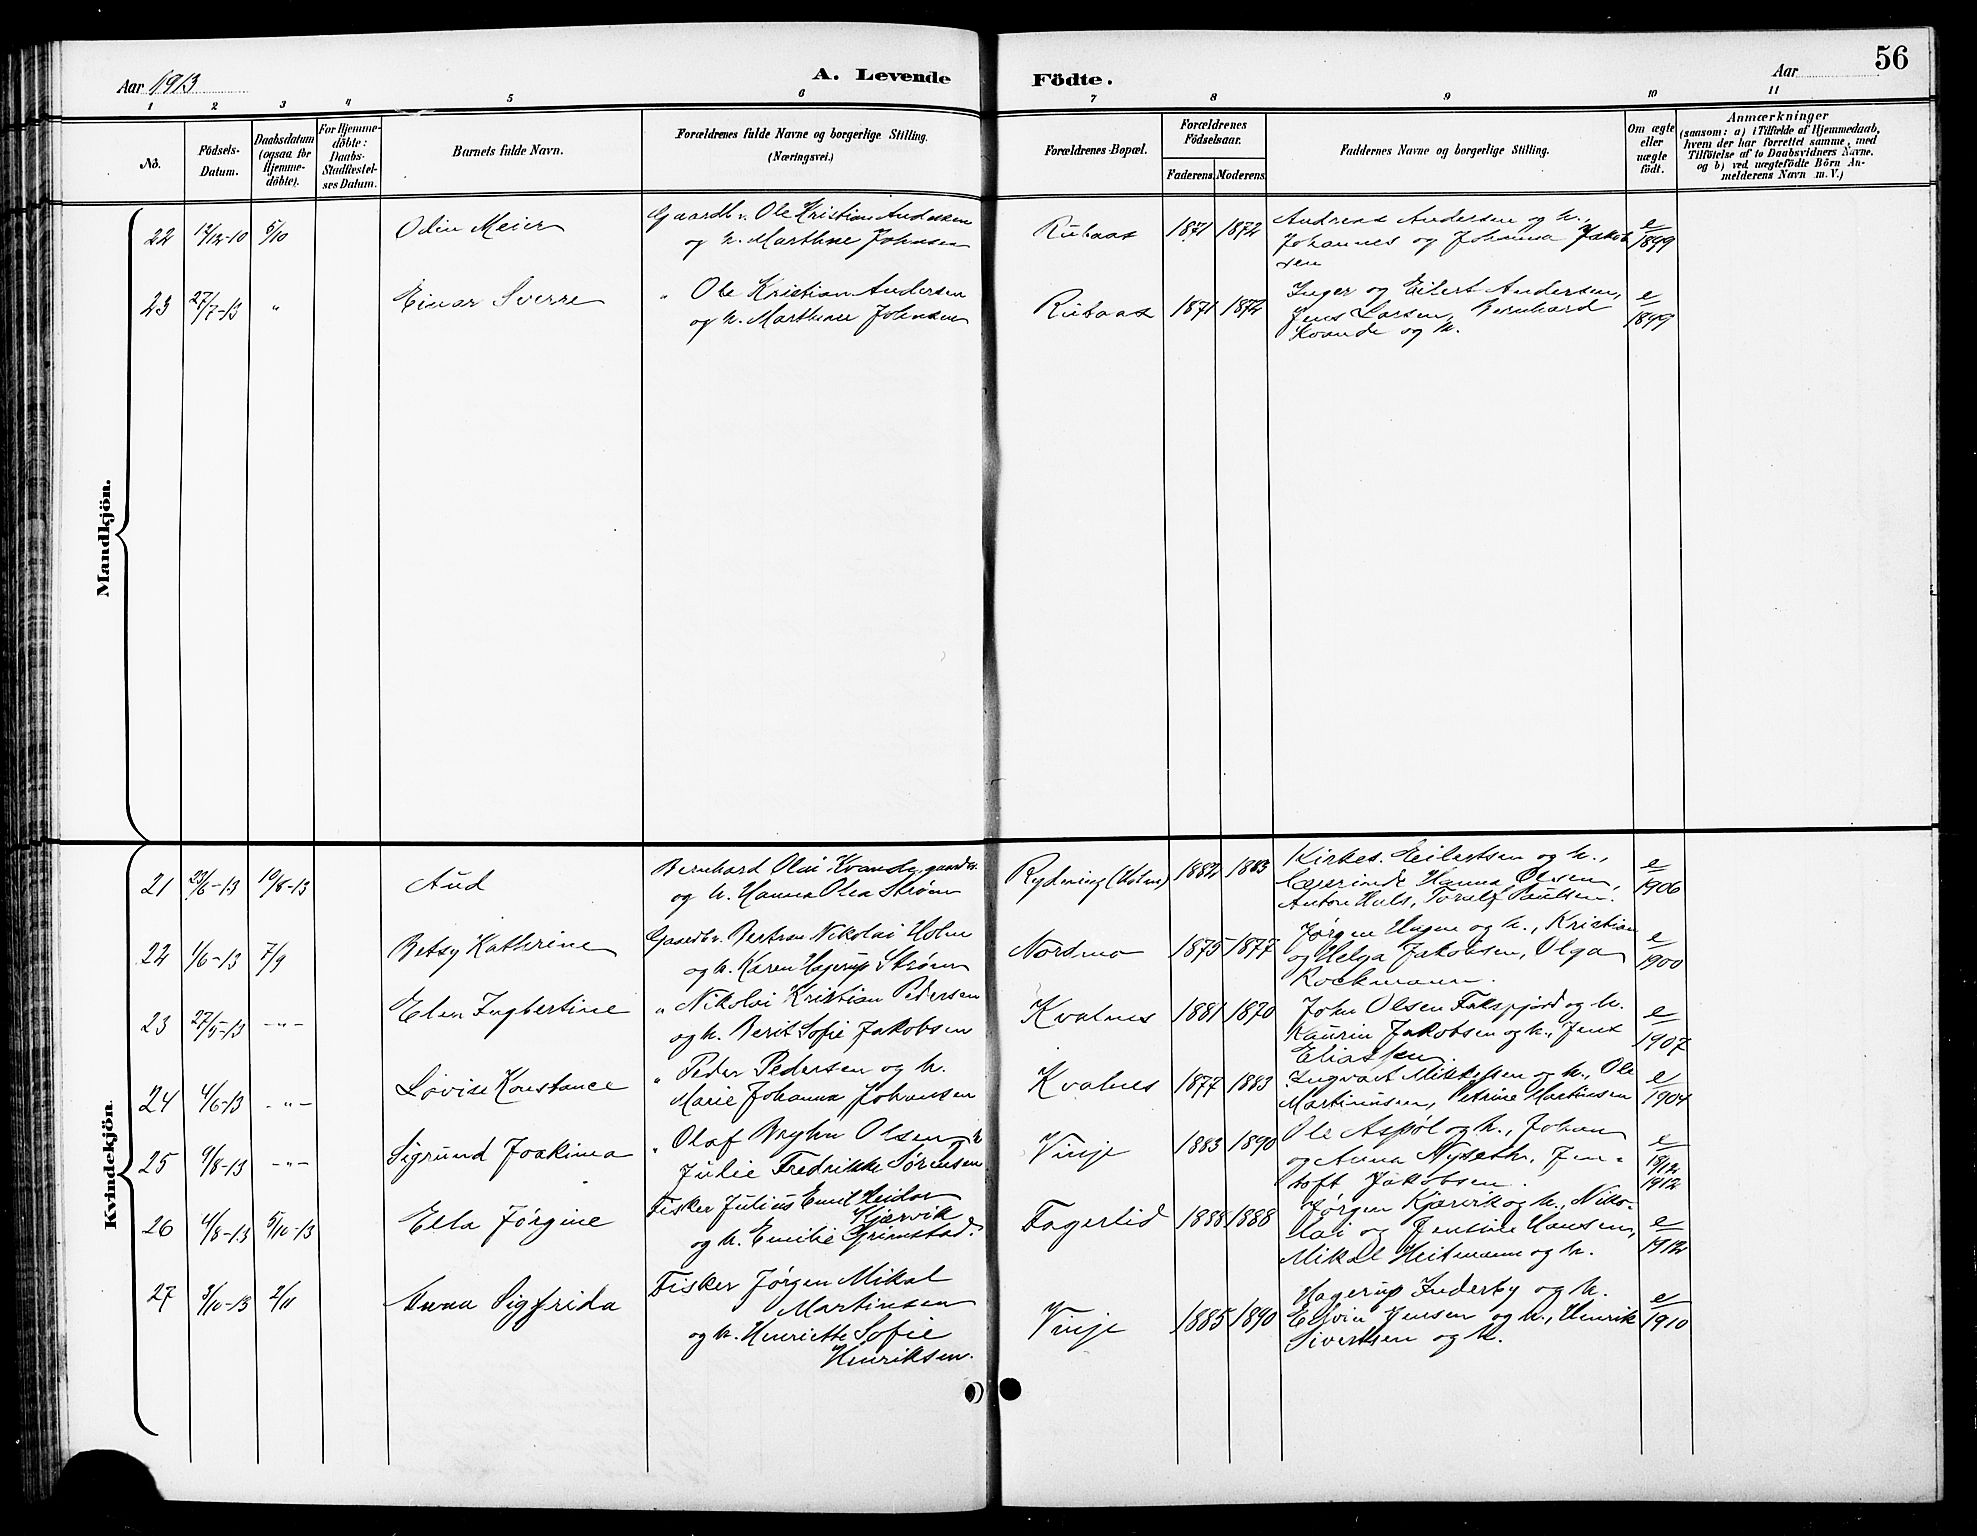 Aar 1913
A. Levende Födte.
Aar
56
1 2 3 4 5 6 7 8 9 10 11
No.
Födsels-
Datum.
Daabsdatum
(ogsaa for
Hjemme-
döbte).
For Hjemme-
döbte:
Daabs-
Stadfestel-
ses Datum.
Barnets fulde Navn.
Forældrenes fulde Navne og borgerlige Stilling.
(Næringsvei.)
Forældrenes Bopæl.
Forældrenes
Födselsaar.
Faderens. Moderens.
Faddernes Navne og borgerlige Stilling.
Om ægte
eller
uægte
födt.
Anmærkninger
(saasom: a) i Tilfælde af Hjemmedaab,
hvem der har forrettet samme, med
Tilföielse af to Daabsvidners Navne,
og b) ved uægtefödte Börn An-
melderens Navn m. V.)
Mandkjön.
22 12/12-10 5/10 Odin Meier
Gaardb. Ole Kristian Andersen
og h. Marthine Johnsen
1871 1872
Andreas Andersen og h.,
Johannes og Johanna Jakob
sen
e/1899
23 27/7-13 " Einar Sverre
" Ole Kristian Andersen
og h. Marthine Johnsen
1871 1872
Inger og Eilert Andersen,
Jens Larsen, Bernhard
Kvande og h.
e/1899
Kvindekjön.
21 23/6-13 10/8-13 Aud
Bernhard Olai Kvande, gaardbr.
og h. Hanna Olea Strøm
Rydning (Holm) 1882 1883
Kirkes. Eilertsen og h.,
Lærerinde Hanna Olsen,
Anton Huls, Torulf Paulsen.
e/1906
22 1/6-13 7/9 Betsy Kathrine
Gaardbr. Bertran Nikolai Holm
og h. Karen Hagerup Strøm
Nordmo 1875 1877
Jørgen Hagen og h., Kristian
og Helga Jakobsen, Olga
Rockmann.
e/1900
23 27/5-13 -"- Elen Ingbertine
" Nikolai Kristian Pedersen
og h. Berit Sofie Jakobsen
Kvalnes 1881 1870
John Olsen Fakspjord og h.
Kaurin Jakobsen og h., Jens
Eliassen.
e/1907
24 4/6-13 -"- Lovise Konstance
" Peder Pedersen og h.
Marie Johanna Johansen
Kvalnes 1877 1883
Ingvart Mikkelsen og h., Ole
Martinussen, Petrine Martinsen
e/1904
25 9/8-13 -"- Sigrund Joakima
" Olaf Bryhn Olsen og h
Julie Fredrikke Sørensen
Vinje 1883 1890
Ole Aspøl og h., Johan
og Anna Nyseth, Jen-
toft Jakobsen.
e/18/12 1912
26 4/8-13 5/10-13 Ella Jørgine
Fisker Julius Emil Heidar
Kjærvik
og h. Emilie Grimstad.
Fagerlid 1888 1888
Jørgen Kjærvik og h., Niko-
lai og Jentine Hansen,
Mikal Heitmann og h.
e/1912
27 3/10-13 2/11 Anna Sigfrida
Fisker Jørgen Mikal
Martinsen
og h. Henriette Sofie
Henriksen.
Vinje 1885 1890
Hagerup Inderby og h.
Edvin Jensen og h., Henrik
Sivertsen og h.
e/1910